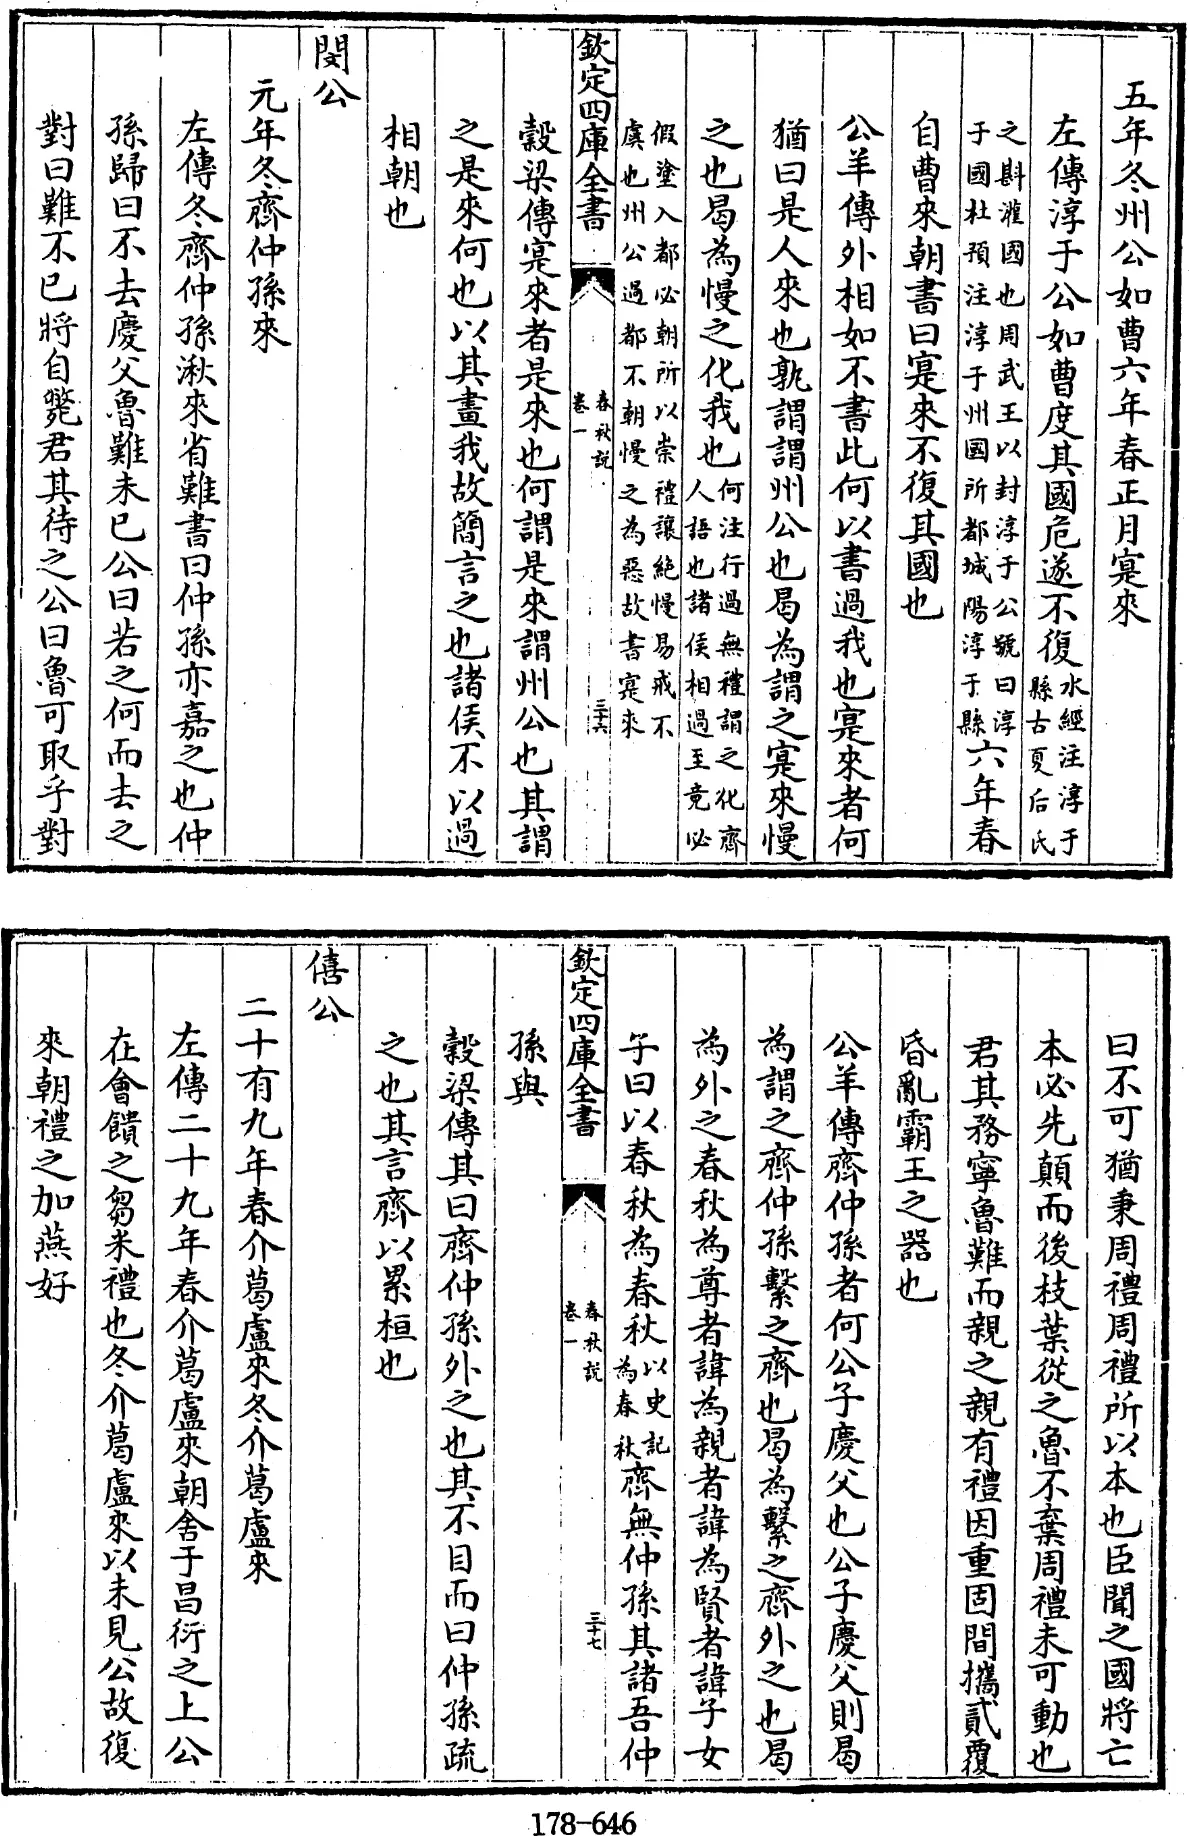 五年冬州公如曹六年春正月寔來
左傳淳于公如曹度其國危遂不復水經注淳于
縣古夏后氏
之斟灌國也周武王以封淳于公號曰淳
于國杜預注淳于州國所都城陽淳于縣六年春
自曹來朝書曰寔來不復其國也
公羊傳外相如不書此何以書過我也寔來者何
猶曰是人來也孰謂謂州公也曷為謂之寔來慢
之也曷為慢之化我也何注行過無禮謂之化齊
人語也諸侯相過至竟必
假塗入都必朝所以崇禮讓絶慢易戒不
虞也州公過都不朝慢之為惡故書寔來
欽定四庫全書
春秋説
卷一
三十六
穀梁傳寔來者是來也何謂是來謂州公也其謂
之是來何也以其畫我故簡言之也諸侯不以過
相朝也
閔公
元年冬齊仲孫來
左傳冬齊仲孫湫來省難書曰仲孫亦嘉之也仲
孫歸曰不去慶父魯難未已公曰若之何而去之
對曰難不已將自斃君其待之公曰魯可取乎對
曰不可猶秉周禮周禮所以本也臣聞之國將亡
本必先顛而後枝葉從之魯不棄周禮未可動也
君其務寧魯難而親之親有禮因重固間攜貳覆
昏亂霸王之器也
公羊傳齊仲孫者何公子慶父也公子慶父則曷
為謂之齊仲孫繫之齊也曷為繫之齊外之也曷
為外之春秋為尊者諱為親者諱為賢者諱子女
子曰以春秋為春秋以史記
為春秋齊無仲孫其諸吾仲
欽定四庫全書
春秋説
卷一
三十七
孫與
穀梁傳其曰齊仲孫外之也其不目而曰仲孫疏
之也其言齊以累桓也
僖公
二十有九年春介葛盧來冬介葛盧來
左傳二十九年春介葛盧來朝舍于昌衍之上公
在會饋之芻米禮也冬介葛盧來以未見公故復
來朝禮之加燕好
178-646